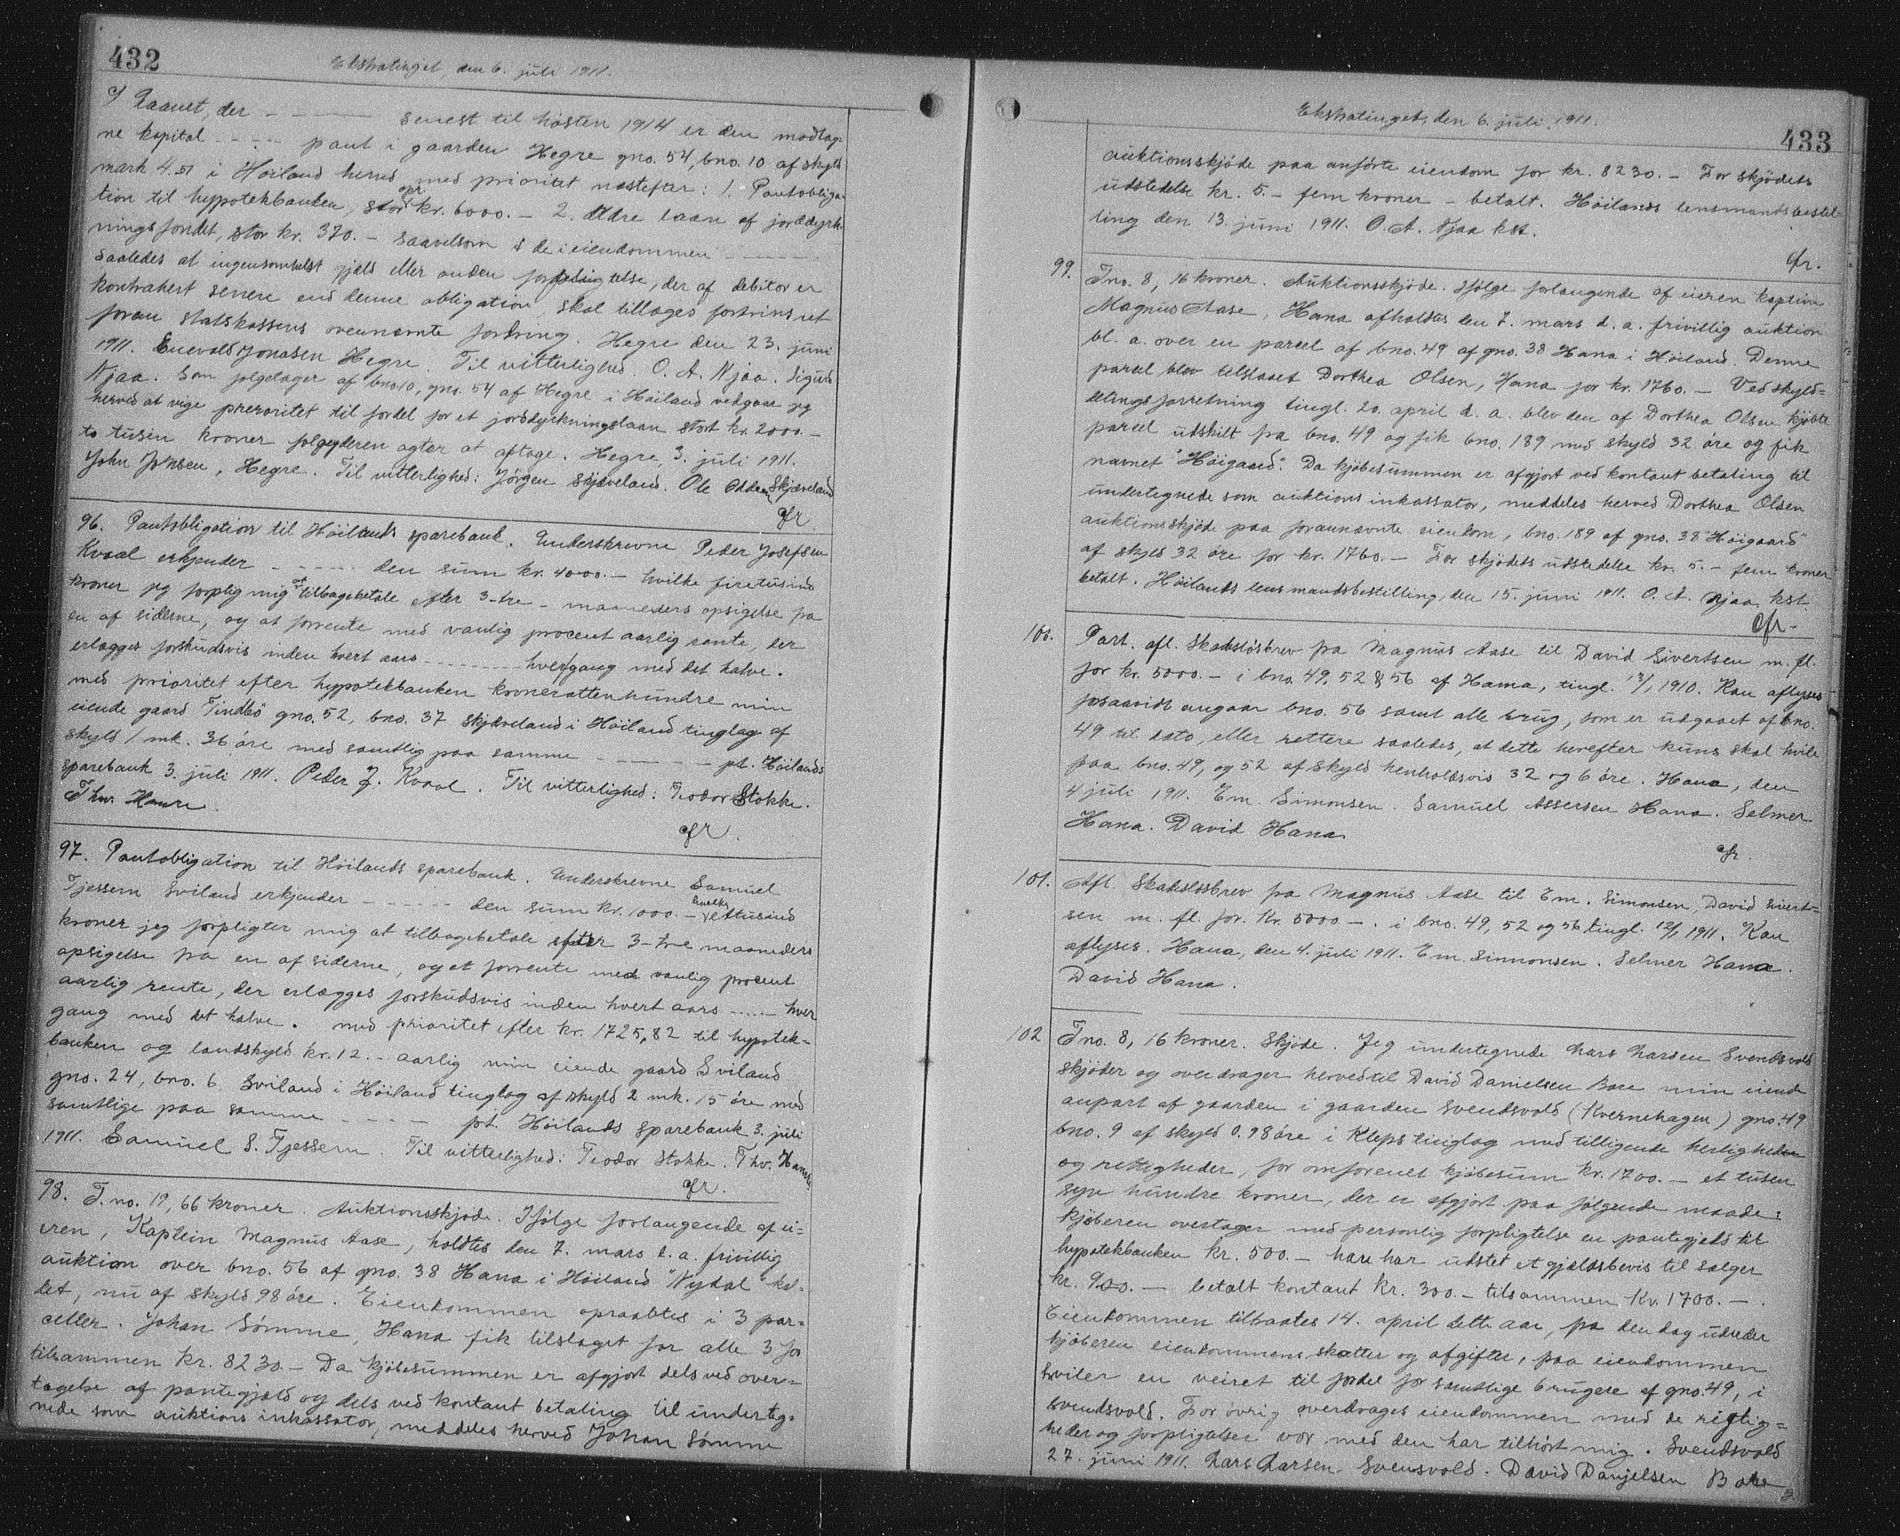 432
Ekstratinget, den 6. juli 1911.
af Laanet, der - - - - senest til høsten 1914 er den modtag-
ne kapital - - - - pant i gaarden Hegre gno. 54, bno. 10 af skyld
mark 4.51 i Höiland herred med prioritet næstefter: 1. Pantobliga-
tion til hypotekbanken, stor opr. kr. 6000.- 2. Ældre laan af jorddyrk-
ningsfondet, stor kr. 370.- saavelsom i de i eiendommen - - - -
saaledes at ingensomhelst gjæld eller anden forpligtelse, der af debitor er
kontrahert senere end denne obligation, skal tillægges fortrinsret
foran statskassens ovennævnte fordring. Hegre den 23. juni
1911. Enevald Jonasen Hegre. Til vitterlighed. O. A. Njaa. Sigurd
Njaa. Som folgetager af bno 10, gno. 54 af Hegre i Höiland vedgaar jeg
herved at vige prerioritet til fordel for et jorddyrkningslaan stort kr. 2000.-
to tusen kroner folgyderen agter at optage. Hegre, 3. juli 1911.
John Jonsen, Hegre. Til vitterlighed: Jörgen Skjæveland. Ole Skjæveland
gfr.
96. Pantobligation til Höilands sparebank. Underskrevne Peder Josefsen
Kvaal erkjender - - - - den sum kr. 4000.- hvilke firetusind
kroner jeg forplig mig at tilbagebetale efter 3-tre- maaneders opsigelse fra
en af siderne, og at forrente med vanlig procent aarlig rente, der
erlægges forskudsvis inden hvert aars - - - - hver gang med det halve.
med prioritet efter hypotekbanken kroner attenhundre min
eiende gaard Tindbö gno. 52, bno. 37 Skjæveland i Höiland tinglag af
skyld 1 mk. 36 öre med samtlig paa samme - - - - pt. Höilands
sparebank 3. juli 1911. Peder J. Kvaal. Til vitterlighed: Teodor Stokke.
Thv. Hanre.
gfr.
97. Pantobligation til Höilands sparebank. Underskrevne Samuel
Tjessem Sviland erkjender - - - - den sum kr. 1000.- hvilke ettusind
kroner jeg forpligter mig at tilbagebetale efter 3-tre maaneders
opsigelse fra en af siderne, og at forrente med vanlig procent
aarlig rente, der erlægges forskudsvis inden hvert aars - - - - hver
gang med det halve. med prioritet efter kr. 1725,82 til hypotek-
banken og landskyld kr. 12.- aarlig min eiende gaard Sviland
gno. 24, bno. 6. Sviland i Höiland tinglag af skyld 2 mk. 15 öre med
samtlige paa samme - - - - pt. Höilands sparebank 3. juli
1911. Samuel S. Tjessem. Til vitterlighed: Teodor Stokke. Thv. Hanre.
gfr.
98. T. no. 19, 66 kroner. Auktionsskjøde. Ifölge forlangende af ei-
eren, Kaptein Magnus Aase, holdtes den 7. mars d. a. frivillig
auktion over bno. 56 af gno. 38 Hana i Höiland "Nydal" kal-
det, nu af skyld 98 öre. Eiendommen opraabtes i 3 par-
celler. Johan Sömme, Hana fik tilslaget for alle 3 for
tilsammen kr. 8230.- Da kjöbesummen er afgjort dels ved over-
tagelse af pantegjæld og dels ved kontant betaling til underteg-
nede som auktions inkassator, meddeles herved Johan Sömme
Ekstratinget, den 6. juli 1911.
433
auktionsskjöde paa anförte eiendom for kr. 8230.- For skjödets
udstedelse kr. 5.- fem kroner - betalt. Höilands lensmandsbestil-
ling den 13. juni 1911. O. A. Njaa kst.
gfr.
99. T no. 8, 16 kroner. Auktionsskjøde. Ifølge forlangende af eieren kaptein
Magnus Aase, Hana afholdtes den 7. mars d. a. frivillig auktion
bl. a. over en parcel af bno. 49 af gno. 38 Hana i Höiland. Denne
parcel blev tilslaaet Dorthea Olsen, Hana for kr. 1760.- Ved skyld-
delingsforretning tingl. 20. april d. a. blev den af Dorthea Olsen kjöbte
parcel udskilt fra bno. 49 og fik bno. 189 med skyld 32 öre og fik
navnet "Höigaard". Da kjöbesummen er afgjort ved kontant betaling til
undertegnede som auktions inkassator, meddeles herved Dorthea Olsen
auktionsskjöde paa forannævnte eiendom, bno. 189 af gno. 38 "Höigaard"
af skyld 32 öre for kr. 1760.- For skjödets udstedelse kr. 5.- fem kroner
betalt. Höilands lensmandsbestilling, den 15. juni 1911. O. A. Njaa kst.
gfr.
100. Part. afl. Skadeslösbrev fra Magnus Aase til David Sivertsen m. fl.
for kr. 5000.- i bno. 49, 52 & 56 af Hana, tingl. 13/1 1910. Kan aflyses
forsaavidt angaar bno. 56 samt alle brug, som er udgaaet af bno.
49 til dato, eller rettere saaledes, at dette herefter kuns skal hvile
paa bno. 49, og 52 af skyld henholdsvis 32 og 6 öre. Hana, den
4 juli 1911. Em. Simonsen. Samuel Assersen Hana. Selmer
Hana. David Hana
gfr.
101. Afl. Skadeslösbrev fra Magnus Aase til Em. Simonsen, David Sivert-
sen m. fl. for. Kr. 5000-. i bno. 49, 52 og 56 tingl. 12/1 1911. Kan
aflyses. Hana, den 4. juli 1911. Em. Simonsen. Selmer Hana.
David Hana.
102 T no. 8, 16 kroner. Skjøde. Jeg undertegnede Lars Larsen Svendsvold
skjöder og overdrager herved til David Danielsen Bore min eiende
anpart af gaarden i gaarden Svendsvold (Kvernehagen) gno. 49
bno. 9 af skyld 0.98 öre i Kleps tinglag med tilligende herligheder
og rettigheder, for omforenet kjöbesum kr. 1700.- et tusen
syv hundre kroner, der er afgjort paa fölgende maade:
kjöberen overtager med personlig forpligtelse en pantegjæld til
hypotekbanken kr. 500.- han har udstet et gjældsbevis til sælger
kr. 900.- betalt kontant kr. 300.- tilsammen Kr. 1700.-
Eiendommen tilbaates 14. april dette aar, fra den dag udreder
kjöberen eiendommens skatter og afgifter, paa eiendommen
hviler en veiret til fordel for samtlige brugere af gno. 49, i
Svendsvold. For övrig overdrages eiendommen med de rigtig-
heder og forpligtelser vor med den har tilhört mig. Svendsvold
27. juni 1911. Lars Larsen Svensvold. David Danjelsen Bore